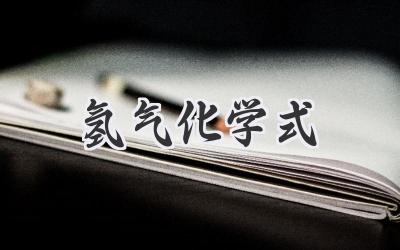 氢气化学式